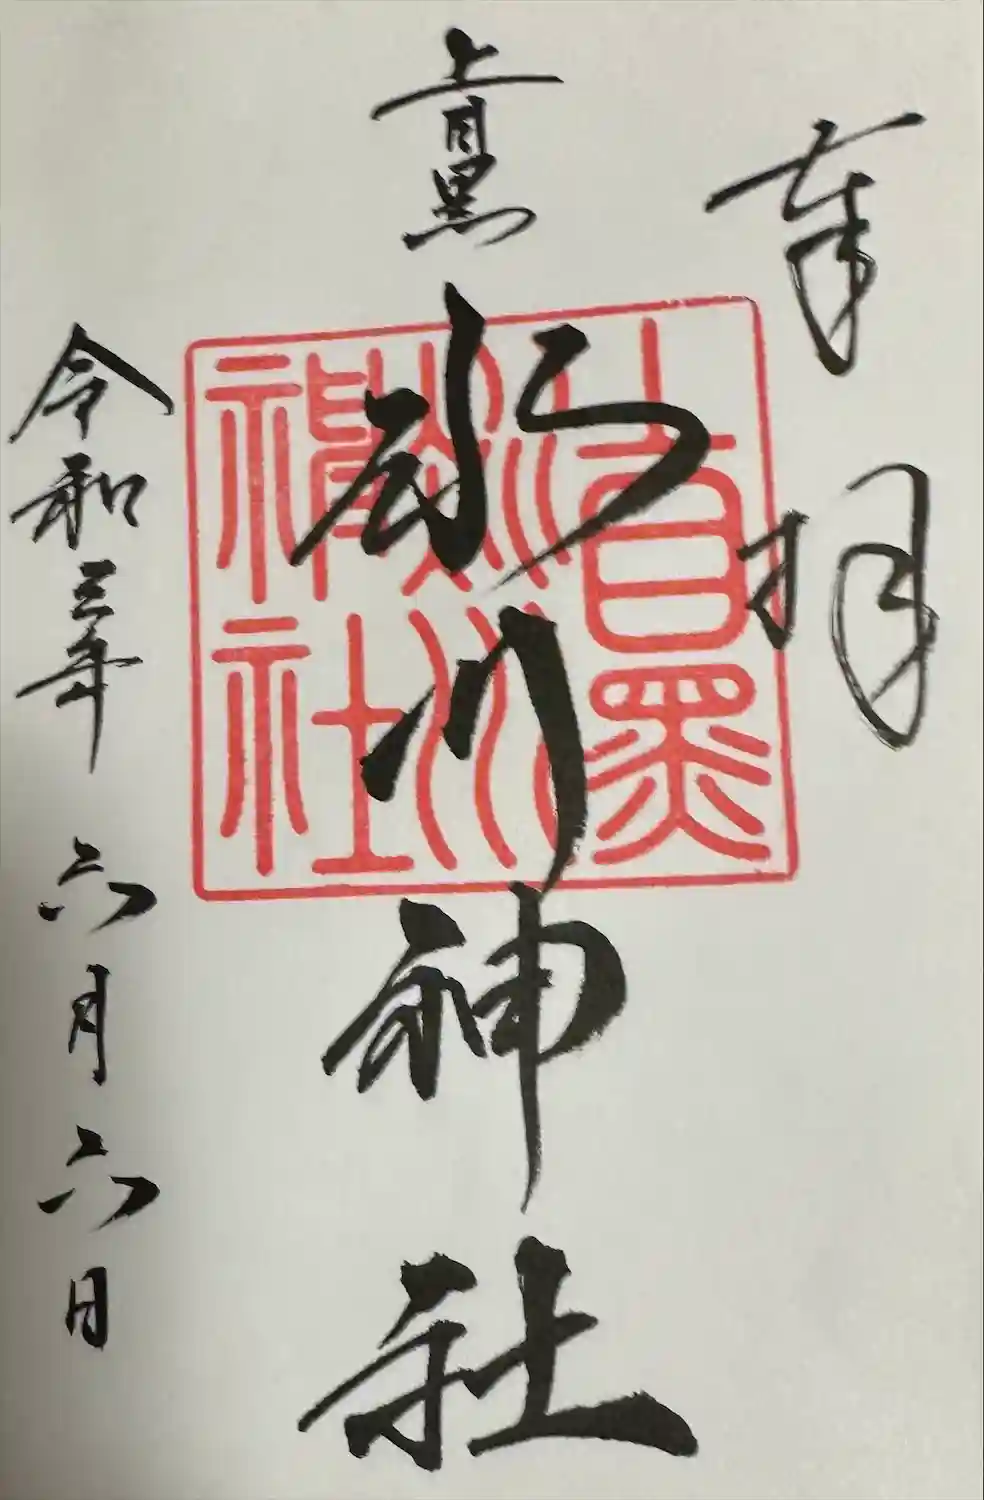 奉拝
上目黒
氷川神社
上目黒
氷川
神社
令和三年六月六日